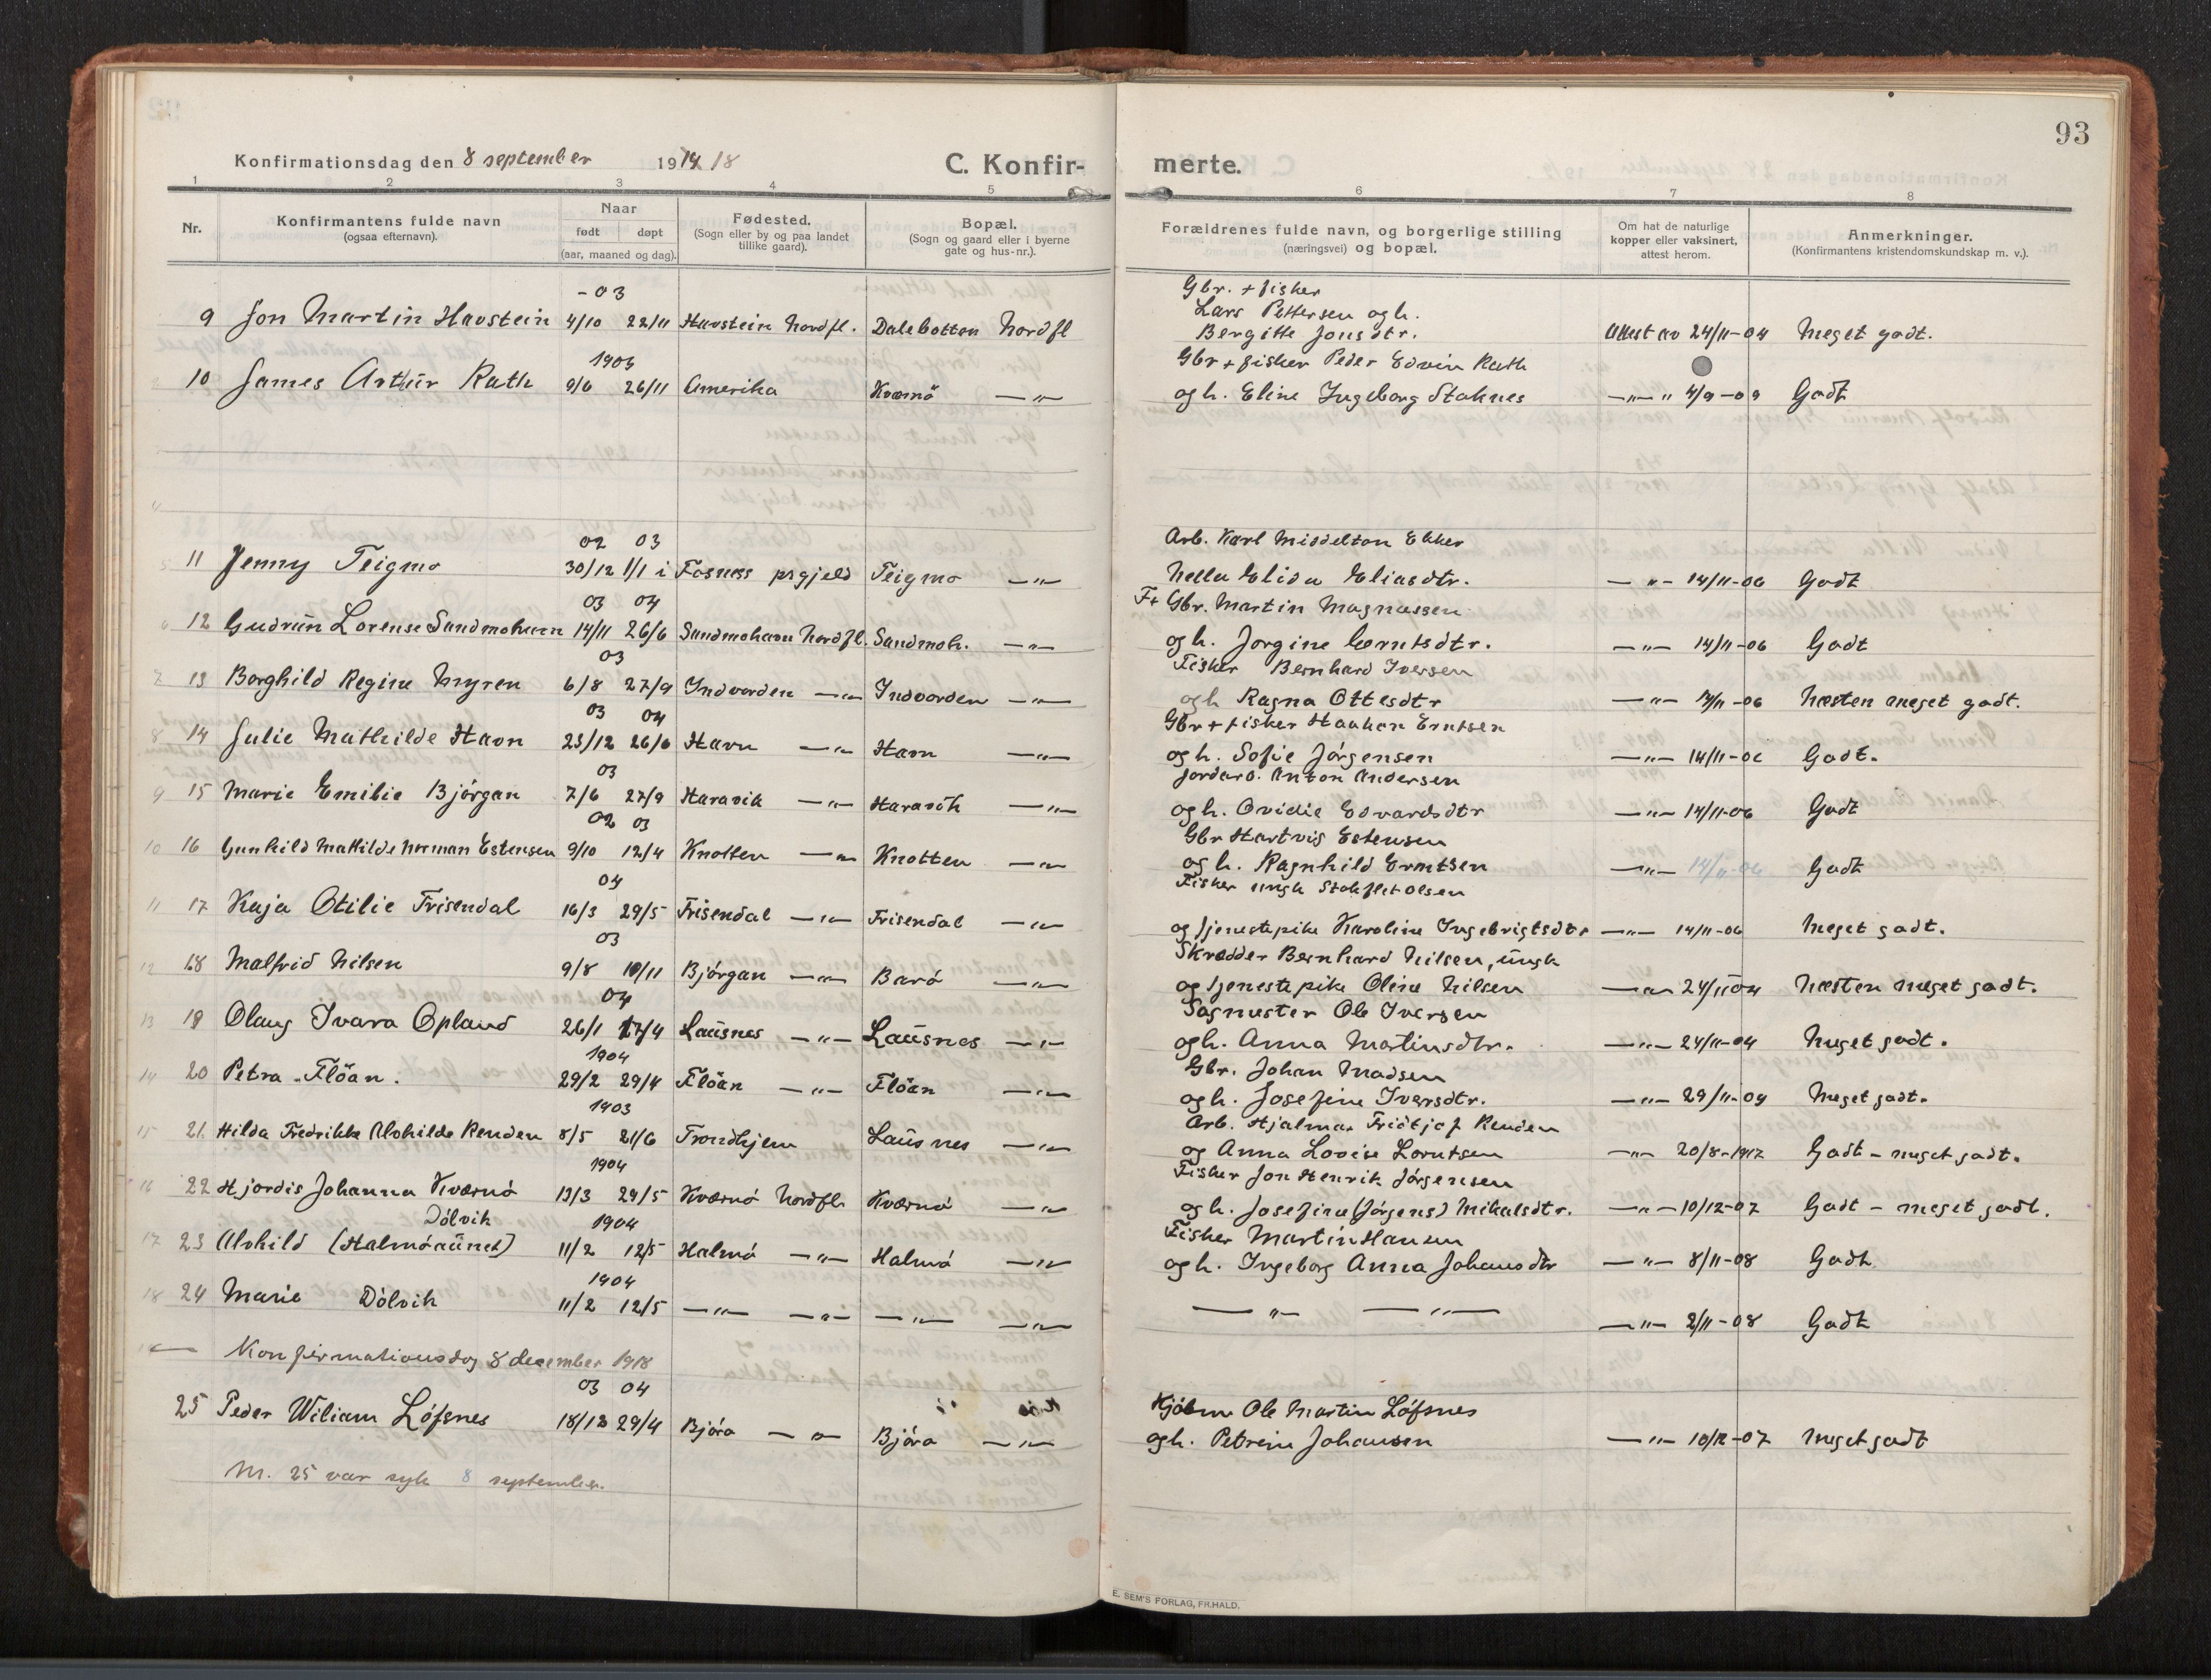 93
Konfirmationsdag den 8 september 1914 18
C. Konfirmerte.
1 2 3 4 5 6 7 8
Nr.
Konfirmantens fulde navn (ogsaa efternavn).
Naar født døpt (aar, maaned og dag).
Fødested. (Sogn eller by og paa landet tillike gaard).
Bopæl. (Sogn og gaard eller i byerne gate og hus-nr.).
Forældrenes fulde navn, og borgerlige stilling (næringsvei) og bopæl.
Om hat de naturlige kopper eller vaksinert, attest herom.
Anmerkninger. (Konfirmantens kristendomskundskap m. v.).
-03 Gbr. + fisker
Lars Pettersen og h.
9 Jon Martin Havstein 4/10 22/11 Havstein Nordfl. Dalebotten Nordfl Bergitte Jonsdtr. Attest av 24/11-04 Meget godt.
1903 Gbr + fisker Peder Edvin Rath
10 James Arthur Rath 9/6 26/11 Amerika Kværnö —"— og h. Eline Ingeborg Staknes —"— " 4/9-09 Godt
02 03 Arb. Karl Middelton Ekker
11 Jenny Teigmo 30/12 1/1 i Fosness prgjeld Teigmo —"— Nella Elida Eliasdtr. —"— 14/11-06 Godt
03 04 F+ Gbr. Martin Magnussen
12 Gudrun Lorense Sandmohavn 14/11 26/6 Sandmohavn Nordfl. Sandmoh. —"— og h. Jorgine Erntsdtr. —"— 14/11-06 Godt
03 Fisker Bernhard Iversen
13 Borghild Regine Myren 6/8 27/9 Indvorden —"— Indvorden —"— og h Ragna Ottesdtr —"— 14/11-06 Næsten meget godt.
03 04 Gbr + fisker Haakon Erntsen
14 Julie Mathilde Havn 23/12 26/6 Havn —"— Havn —"— og h. Sofie Jørgensen —"— 14/11-06 Godt.
03 Jordarb. Anton Andersen
15 Marie Emilie Bjørgan 7/6 27/9 Haravik —"— Haravik —"— og h. Ovidie Edvardsdtr —"— 14/11-06 Godt
02 03 Gbr Hartvig Estensen
16 Gunhild Mathilde Norman Estensen 9/10 12/4 Knotten —"— Knotten —"— og h. Ragnhild Erntsen —"— 14/11-06 Godt
04 Fisker ungk Stokflet Olsen
17 Kaja Otilie Frisendal 16/3 29/5 Frisendal —"— Frisendal —"— og tjenestepike Karoline Ingebrigtsdtr —"— 14/11-06 Meget godt.
03 Skrædder Bernhard Nilsen, ungk
18 Malfrid Nilsen 9/8 10/11 Bjørgan —"— Barø —"— og tjenestepike Oline Nilsen —"— 24/11-04 Næsten meget godt.
04 Sagmester Ole Iversen
19 Olaug Ivara Opland 26/1 17/4 Lausnes —"— Lausnes —"— og h. Anna Martinsdtr. —"— 24/11-04 Meget godt.
1904 Gbr. Johan Madsen
20 Petra Flöan. 29/2 29/4 Flöan —"— Flöan —"— og h. Josefine Iversdtr. —"— 29/11-04 Meget godt.
1903 Arb. Hjalmar Fridtjof Renden
21. Hilda Fredrikke Alvhilde Renden 8/5 21/6 Trondhjem Lausnes —"— og Anna Lovise Lorntsen —"— 20/8-1912 Godt - meget godt.
1904 Fisker Jon Henrik Jørgensen
22 Hjordis Johanna Kværnø 13/3 24/5 Kværnø Nordfl. Kværnø —"— og h. Josefine (Jørgens) Mikalsdtr. —"— 10/12-07 Godt - meget godt.
Dölvik 1904 Fisker Martin Hansen
23 Alvhild (Halmøaunet) 11/2 12/5 Halmø —"— Halmø —"— og h. Ingeborg Anna Johansdtr —"— 8/11-08 Godt
1904
24 Marie Dölvik 11/2 12/5 —"— —"— —"— —"— —"— —"— —"— 2/11-08 Godt
— Konfirmationsdag 8 december 1918
03 04
25 Peder Wiliam Løfsnes 18/12 29/4 Bjøra —"— Bjøra —"— Ole Martin Løfsnes
og h. Petrine Johansen —"— 10/12-07 Meget godt
Nr. 25 var syk 8 september.
E. SEM'S FORLAG, FR.HALD.